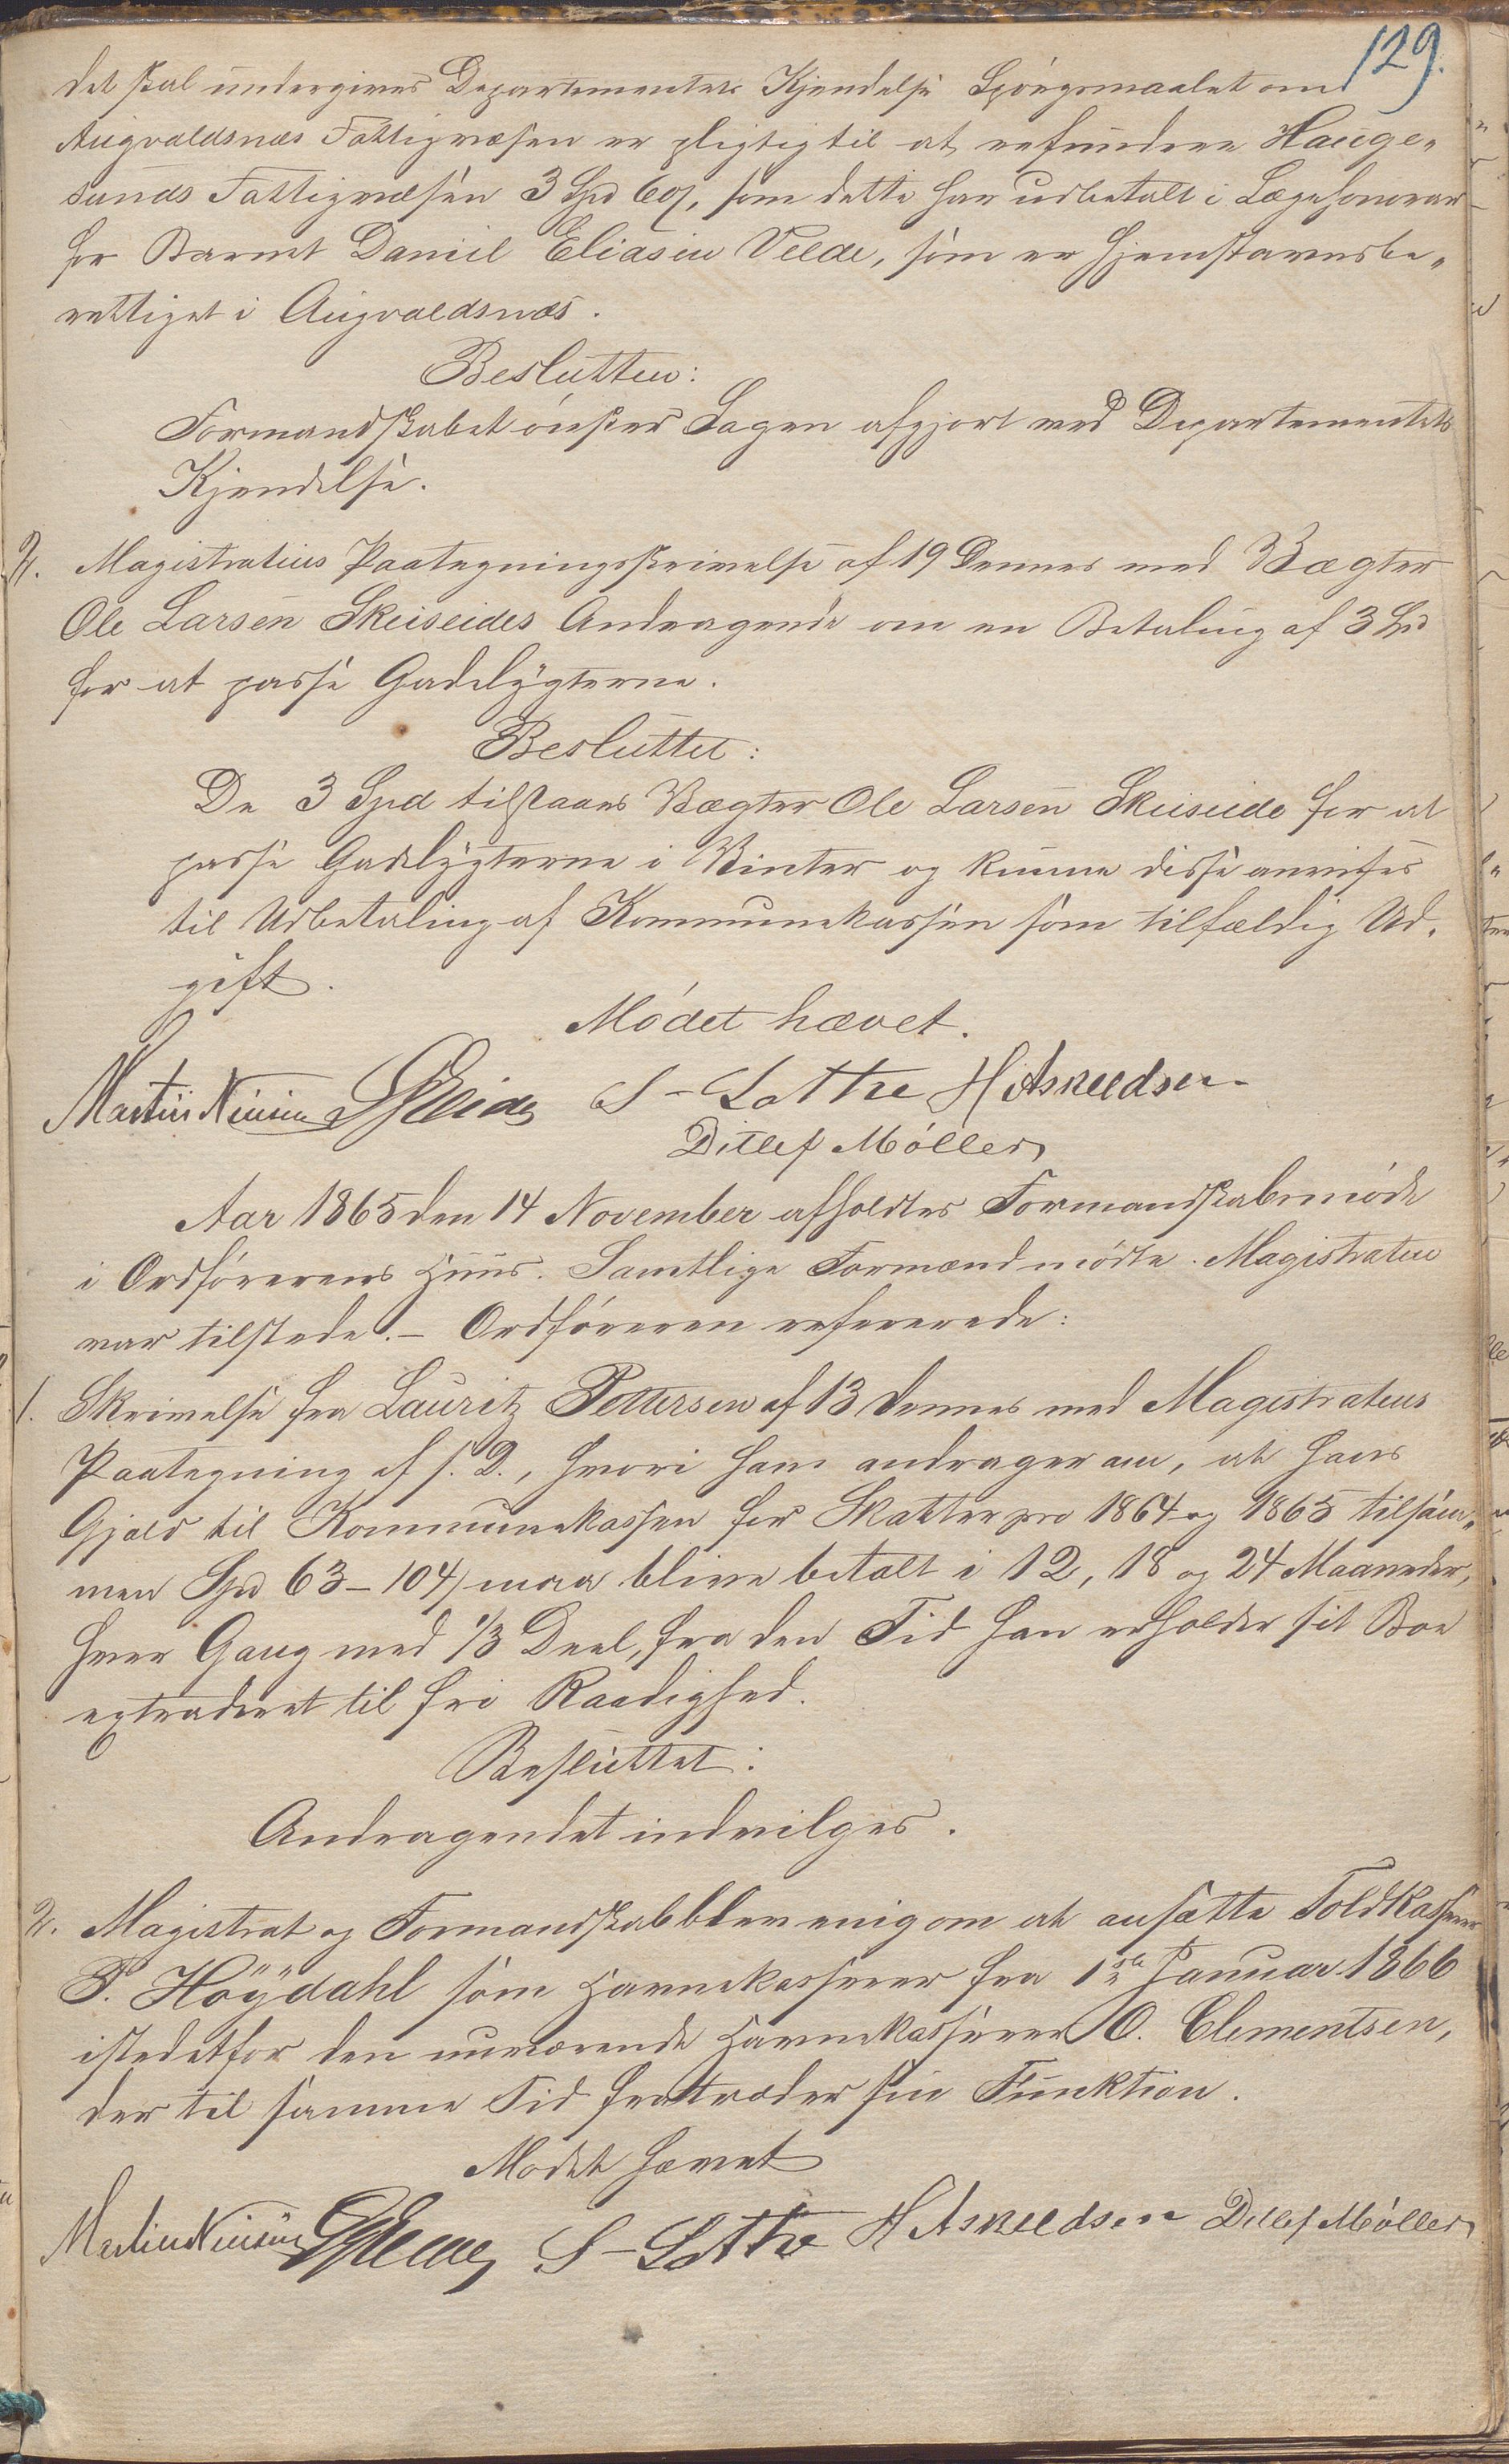 129.
det skal undergives Departementets Kjendelse Spörgsmaalet om
Augvaldsnæs Fattigvæsen er pligtig til at refundere Hauge„
sunds Fattigvæsen 3 Spd 60 s, som dette har udbetalt i Lægehonorar
for Barnet Daniel Eliasen Velde, som er hjemstavnsbe„
rettiget i Augvaldsnæs.
Besluttet:
Formandskabet önsker Sagen afgjort ved Departementets
Kjendelse.
2. Magistratens Paategningsskrivelse af 19 Dennes med Vægter
Ole Larsen Skeiseides Andragende om en Betaling af 3 Spd
for at passe Gadelygterne.
Besluttet:
De 3 Spd tilstaaes Vægter Ole Larsen Skeiseide for at
passe Gadelygterne i Vinter og kunne disse anvises
til Udbetaling af Kommunekassen som tilfældig Ud„
gift.
Mödet hævet.
Martin S-Lothe H Asneldsen
Ditlef Möller
Aar 1865 den 14 November afholdtes Formandskabsmöde
i Ordförerens Huus. Samtlige Formænd mödte. Magistraten
var tilstede. – Ordföreren refererede:
1. Skrivelse fra Lauritz Pettersen af 13 Dennes med Magistratens
Paategning af s. D., hvori han andrager om, at hans
Gjæld til Kommunekassen for Skatter pro 1864 og 1865 tilsam„
men Spd 63 – 104 s maa blive betalt i 12, 18 og 24 Maaneder,
hver Gang med 1/3 Deel, fra den Tid han erholder sit Boe
extraderet til fri Raadighed.
Besluttet:
Andragendet indvilges.
2. Magistrat og Formandskab blev enig om at ansætte Toldkasserer
P. Höÿdahl som Havnekasserer fra 1ste Januar 1866
istedetfor den nuværende Havnekasserer O. Clementsen,
der til samme Tid fratræder sin Funktion.
Mödet hævet
Martin S-Lothe H Asneldsen Ditlef Möller